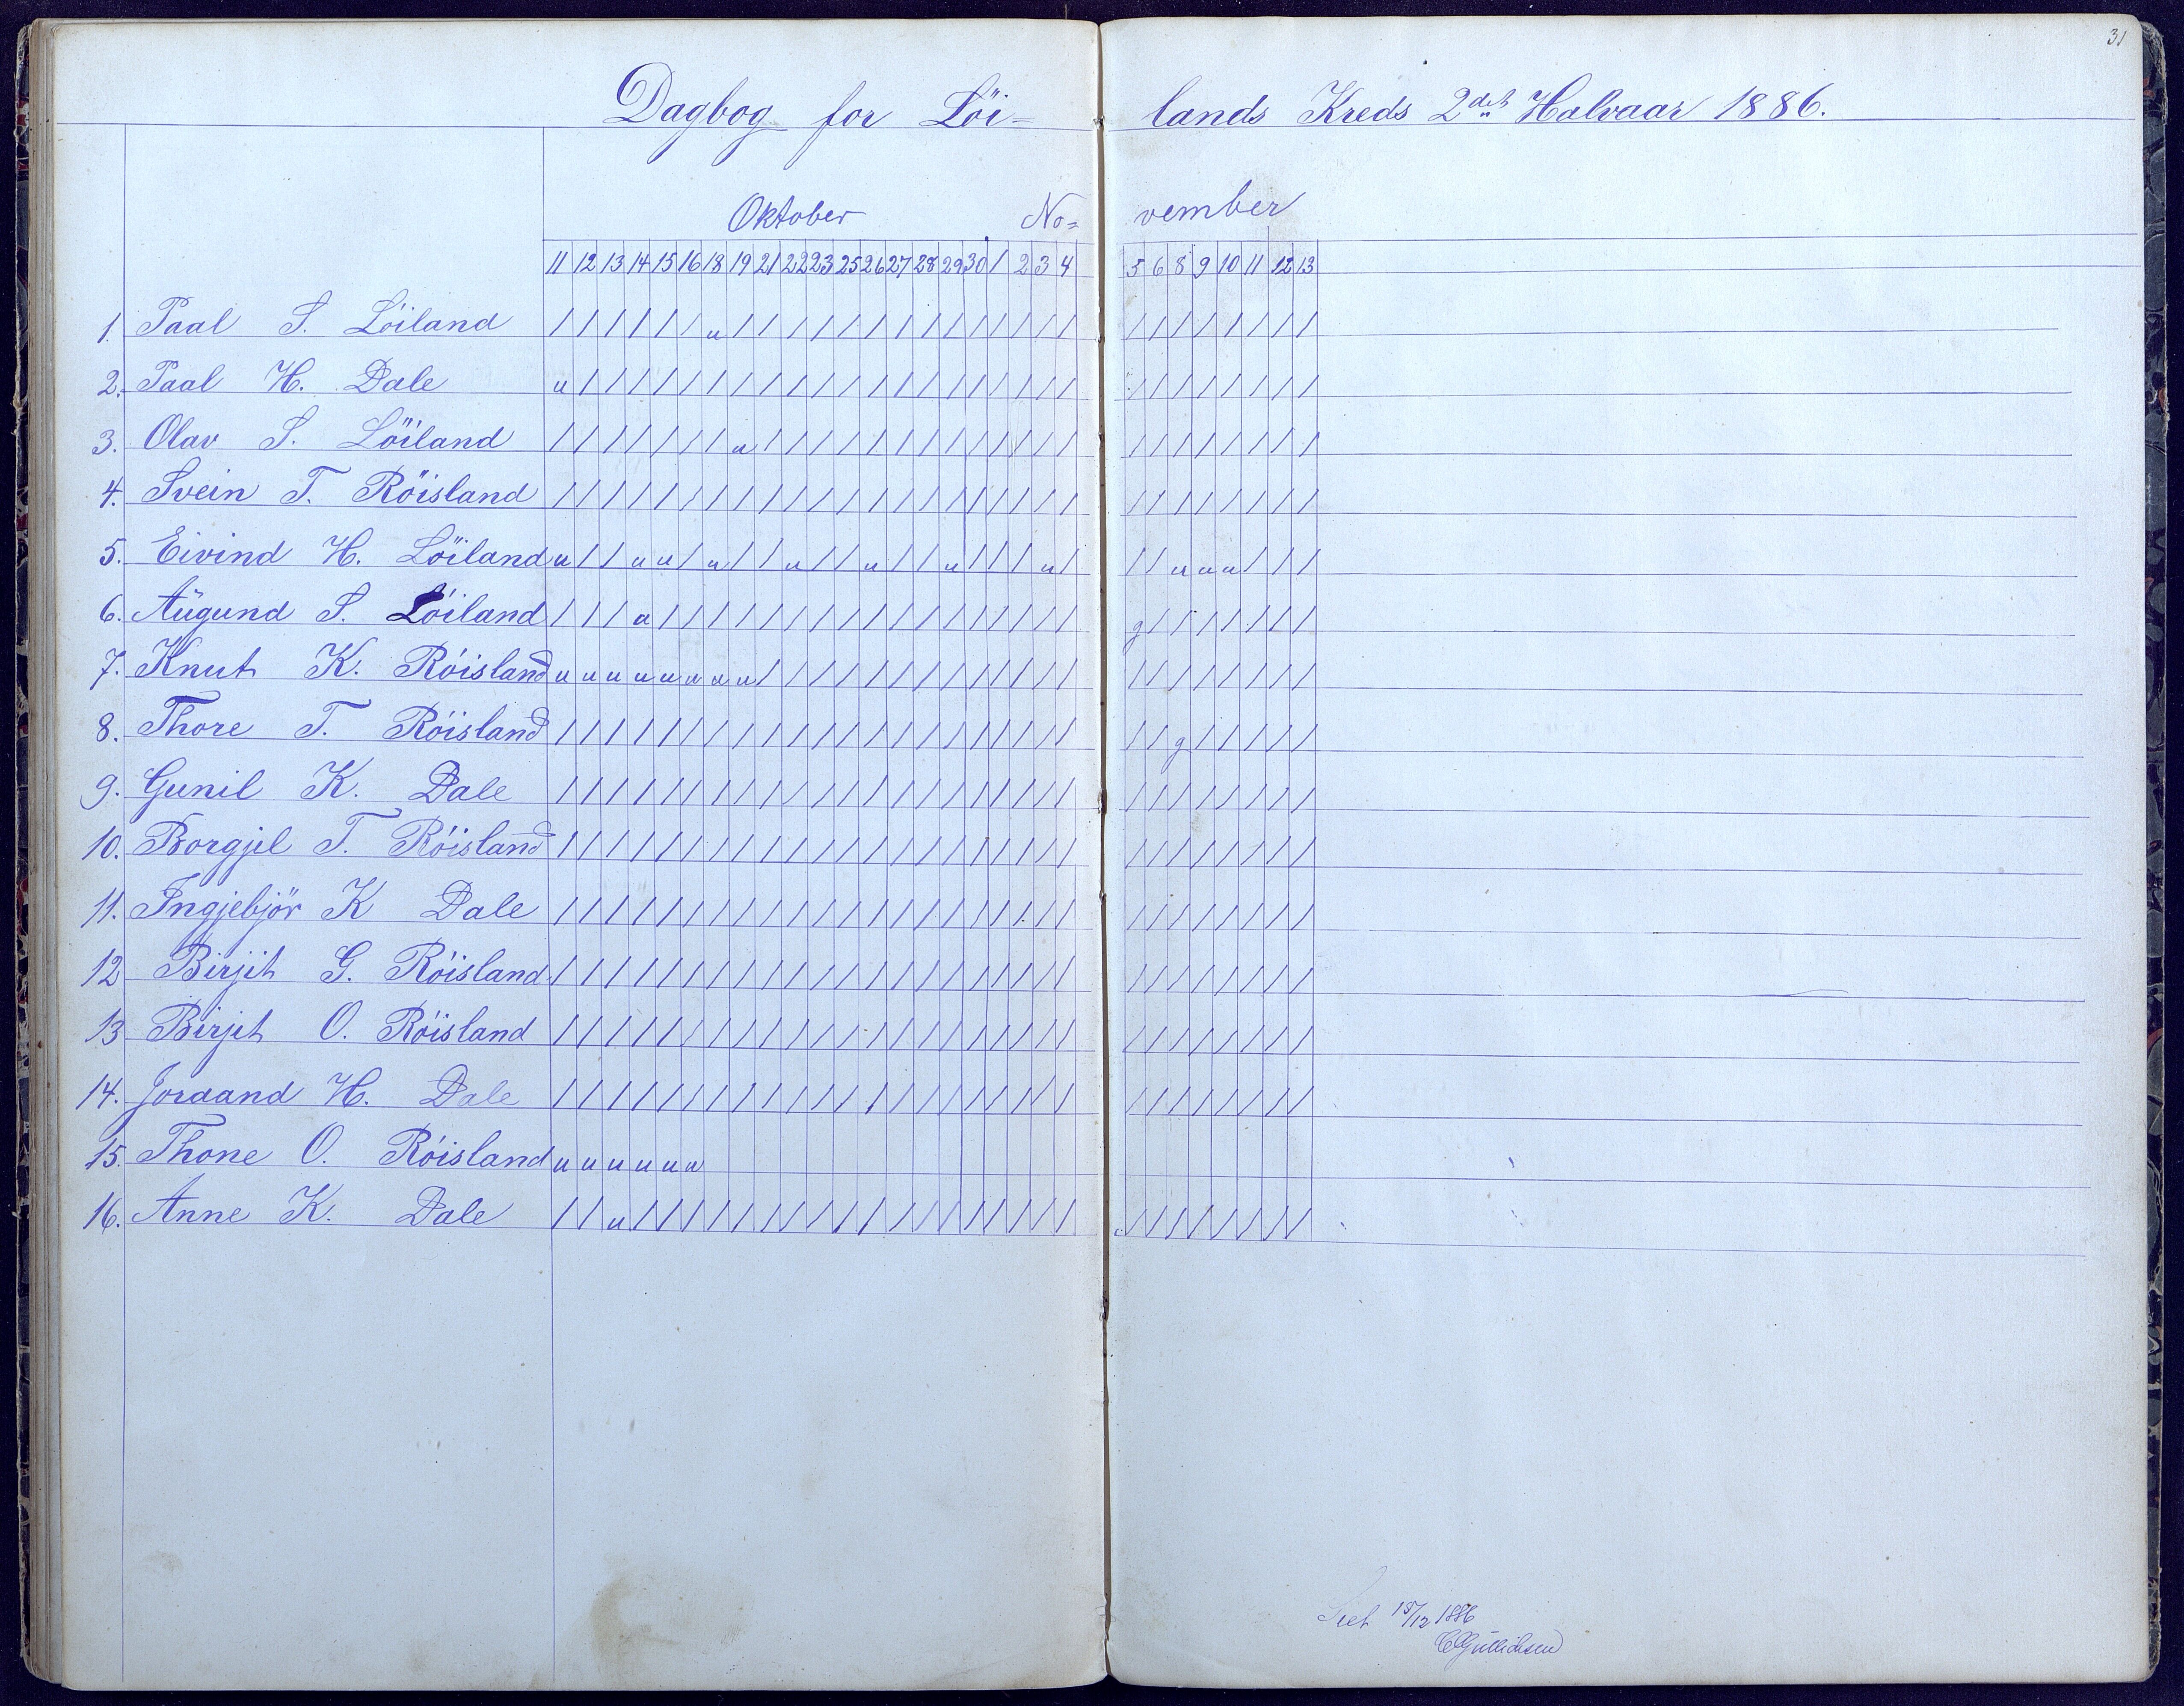 31
Dagbog for Löi= lands Kreds 2det Halvaar 1886.
Oktober No= vember
11 12 13 14 15 16 18 19 21 22 23 25 26 27 28 29 30 1 2 3 4 5 6 8 9 10 11 12 13
1. Paal S. Löiland / / / / / / u / / / / / / / / / / / / / / / / / / / / / /
2. Paal H. Dale u / / / / / / / / / / / / / / / / / / / / / / / / / / / /
3. Olav S. Löiland / / / / / / / u / / / / / / / / / / / / / / / / / / / / /
4. Svein T. Röisland / / / / / / / / / / / / / / / / / / / / / / / / / / / / /
5. Eivind H. Löiland u / / u u / u / / u / / u / / u / / / u / / / u u u / / /
6. Aügund S. Löiland / / / u / / / / / / / / / / / / / / / / / g / / / / / / /
7. Knut K. Röisland u u u u u u u u / / / / / / / / / / / / / / / / / / / / /
8. Thore T. Röisland / / / / / / / / / / / / / / / / / / / / / / / g / / / / /
9. Gunil K. Dale / / / / / / / / / / / / / / / / / / / / / / / / / / / / /
10. Borgjil T. Röisland / / / / / / / / / / / / / / / / / / / / / / / / / / / / /
11. Ingjebjör K Dale / / / / / / / / / / / / / / / / / / / / / / / / / / / / /
12 Birjit G. Röisland / / / / / / / / / / / / / / / / / / / / / / / / / / / / /
13 Birjit O. Röisland / / / / / / / / / / / / / / / / / / / / / / / / / / / / /
14. Joraand H. Dale / / / / / / / / / / / / / / / / / / / / / / / / / / / / /
15. Thone O. Röisland u u u u u u
16. Anne K. Dale / / u / / / / / / / / / / / / / / / / / / / / / / / / / /
Seet 15/12 1886